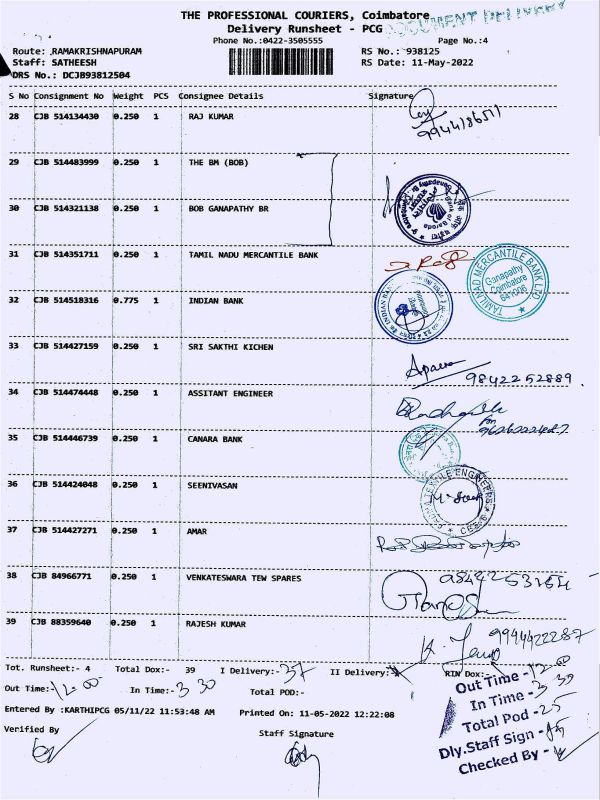 THE PROFESSIONAL COURIERS, Coimbatore
DOCUMENT DELIVERY
Delivery Runsheet - PCG
Phone No.:0422-3505555
Page No.:4
Route: ,RAMAKRISHNAPURAM
RS No.: 938125
Staff: SATHEESH
RS Date: 11-May-2022
DRS No.: DCJB93812504
S No Consignment No Weight PCS Consignee Details Signature
28 CJB 514134430 0.250 1 RAJ KUMAR
9944186511
29 CJB 514483999 0.250 1 THE BM (BOB)
30 CJB 514321138 0.250 1 BOB GANAPATHY BR
31 CJB 514351711 0.250 1 TAMIL NADU MERCANTILE BANK
TAMILNAD MERCANTILE BANK LTD
Ganapathy
Coimbatore
641006
32 CJB 514518316 0.775 1 INDIAN BANK
33 CJB 514427159 0.250 1 SRI SAKTHI KICHEN
9842252889
34 CJB 514474448 0.250 1 ASSITANT ENGINEER
35 CJB 514446739 0.250 1 CANARA BANK
36 CJB 514424048 0.250 1 SEENIVASAN
37 CJB 514427271 0.250 1 AMAR
38 CJB 84966771 0.250 1 VENKATESWARA TEW SPARES
39 CJB 88359640 0.250 1 RAJESH KUMAR
9944422287
Tot. Runsheet:- 4 Total Dox:- 39 I Delivery:- 37 II Delivery:- RTN Dox:-
Out Time:- 12.00 In Time:- 3 30 Total POD:-
Entered By :KARTHIPCG 05/11/22 11:53:48 AM Printed On: 11-05-2022 12:22:08
Verified By
Staff Signature
Out Time - 12.00
In Time - 3 30
Total Pod - 25
Dly.Staff Sign -
Checked By -